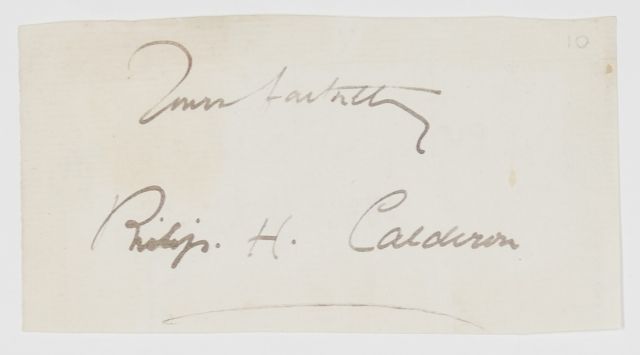 10
Yours faithfully
Philip. H. Calderon